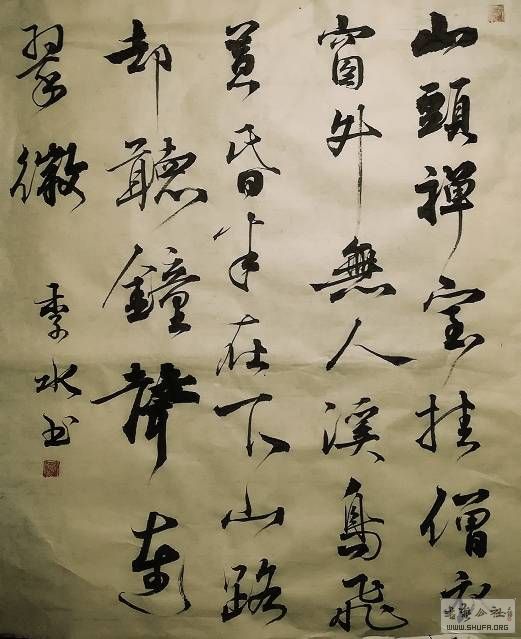 山頭禅室挂僧衣
窗外無人溪鳥飛
黄昏半在下山路
却聽鐘聲連
翠微
李水书
书法公社
WWW.SHUFA.ORG